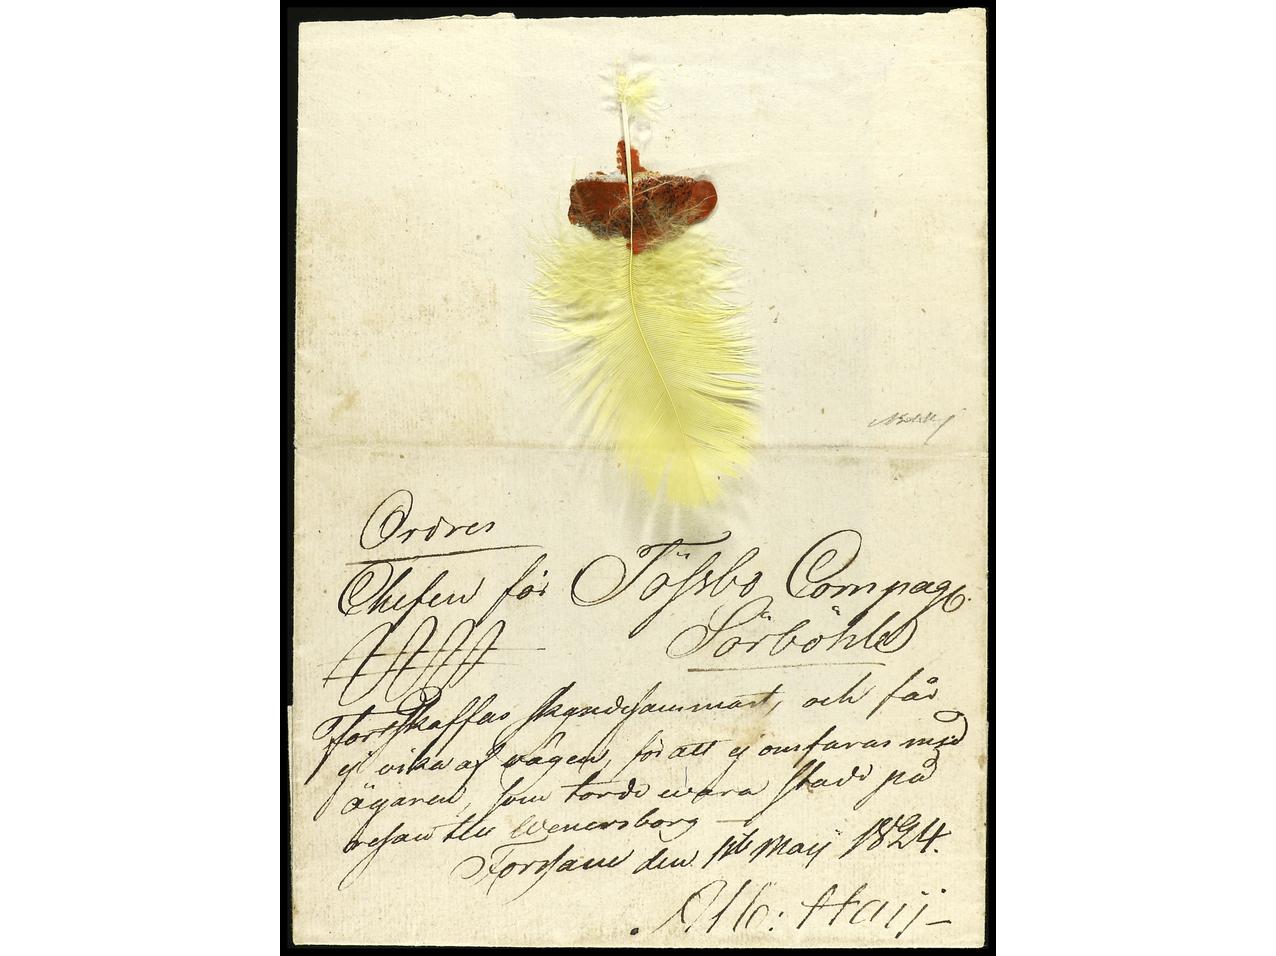 Ordres
Chefen för Tössbo Compag
Sörböhle
Fortskaffas skyndesammast, och får
ej vika af vägen, för att ej omfaras med
ägaren, som torde wara stadd på
resan till Wenersborg
den Maij 1824.
Alb: Haij